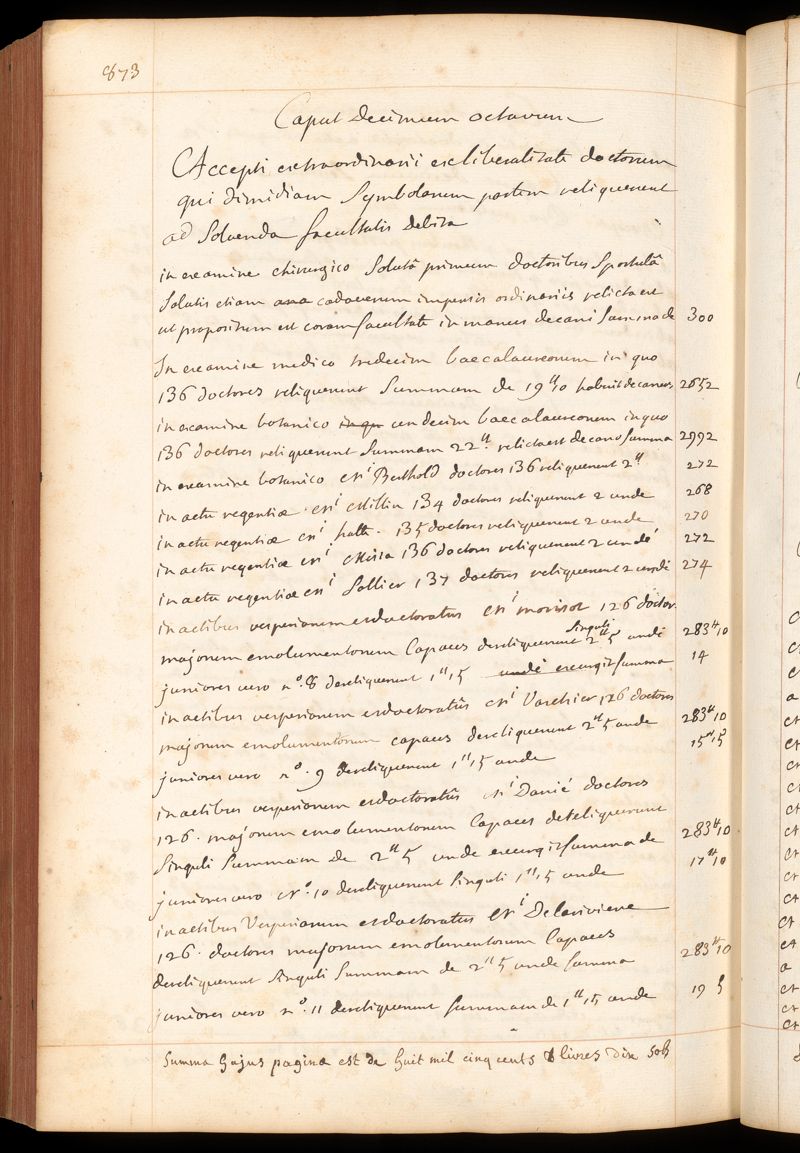 873
Caput Decimum octavum
Accepti extraordinarii ex liberalitate doctorum
qui dimidiam Symbolarum partem reliquerunt
ad Solvenda facultatis Debita
in examine chirurgico Solutâ primum doctoribus Sportulâ
Solutis etiam cadaverum impensis ordinariis relicta est
ut propositum est coram facultate in manus decani Summa de 300
In examine medico tredecim baccalaureorum in quo
136 doctores reliquerunt Summam de 19 ₶ 10 habuit decanus 2652
in examine botanico undecim baccalaureorum in quo
136 doctores reliquerunt Summam 22 ₶. relicta est decano Summa 2992
in examine botanico Mi Berthold doctores 136 reliquerunt 2 ₶ 272
in actu regentiæ Mi Millin 134 doctores reliquerunt 2 unde 268
in actu regentiæ Mi hallé. 135 doctores reliquerunt 2 unde 270
in actu regentiæ Mi 136 doctores reliquerunt 2 undè 272
in actu regentiæ Mi Sollier 137 doctores reliquerunt 2 undè 274
in actibus vesperiarum et doctoratûs Mi morisot 126 doctor.
majorum emolumentorum Capaces dereliquerunt Singuli 2 ₶ 5 undè 283 ₶ 10
juniores vero no. 8 dereliquerunt 1 ₶ 15 undè exsurgit Summa 14
in actibus vesperiarum et doctoratûs Mi Varchier 126 doctores
majorum emolumentorum capaces dereliquerunt 2 ₶ 5 unde 283 ₶ 10
juniores vero no. 9 dereliquerunt 1 ₶ 15 unde 15 ₶ 15
in actibus vesperiarum et doctoratûs Mi Danié doctores
126. majorum emolumentorum Capaces dereliquerunt
Singuli Summam de 2 ₶ 5 unde exsurgit Summa de 283 ₶ 10
juniores vero No. 10 dereliquerunt Singuli 1 ₶ 15 unde 17 ₶ 10
in actibus Vesperiarum et doctoratus Mi Delariviere
126. doctores majorum emolumentorum Capaces
dereliquerunt Singuli Summam de 2 ₶ 5 unde Summa 283 ₶ 10
juniores vero no. 11 dereliquerunt Summam de 1 ₶ 15 unde 19 5
Summa hujus paginæ est de huit mil cinq cents livres dix sols